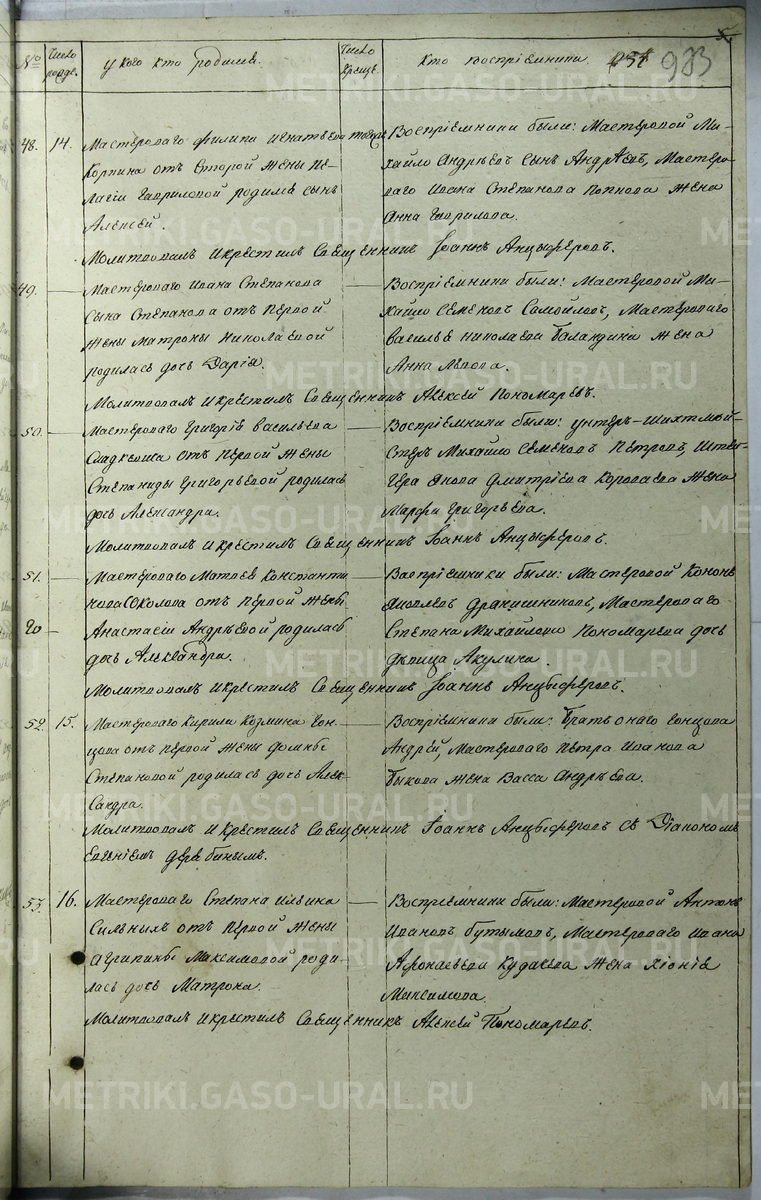 №
Число рожде.
у кого кто родился.
Число Крещ.
кто восприемники.
983
48. 14.
Мастероваго Филипа Игнатьева
Корпина отъ второй жены Пе-
лагеи Гавриловой родился сынъ
Алексей.
Восприемники были: Мастеровой Ми-
хайло Андреевъ сынъ Андреевъ, Мастеро-
ваго Ивана Степанова Попкова жена
Анна Гаврилова.
Молитвовалъ и крестилъ Священникъ Iоаннъ Анцыферовъ.
49.
Мастероваго Ивана Степанова
сына Степанова отъ первой
жены Матроны Николаевой
родилась дочь Дарiя.
Восприемники были: Мастеровой Ми-
хайло Семеновъ Самойловъ, Мастероваго
Василья Николаева Баландина жена
Анна Львова.
Молитвовалъ и крестилъ Священникъ Алексей Пономаревъ.
50.
Мастероваго Григорiй Васильева
отъ первой жены
Степаниды Григорьевой родилась
дочь Александра.
Восприемники были: унтеръ-шихтмей-
стеръ Михайло Семеновъ Петровъ, Штей-
гера Якова Дмитрiева Короваева жена
Марфа Григорьева.
Молитвовалъ и крестилъ Священникъ Iоаннъ Анцыферовъ.
51.
Мастероваго Матвея Константи
нова Соколова отъ первой жены
20
Анастасiи Андреевой родилась
дочь Александра.
Восприемники были: Мастеровой Кононъ
Яковлевъ Мастероваго
Степана Михайлова Пономарева дочь
девица Акулина.
Молитвовалъ и крестилъ Священникъ Iоаннъ Анцыферовъ.
52. 15.
Мастероваго Кирила Козмина Гон-
цова отъ первой жены Фомины
Степановой родилась дочь Алек-
сандра.
Восприемники были: Братъ онаго Гонцова
Андрей, Мастероваго Петра Иванова
Быкова жена Васса Андреева.
Молитвовалъ и крестилъ Священникъ Iоаннъ Анцыферовъ съ Дiакономъ
Евгенiемъ Дерябинымъ.
53. 16.
Мастероваго Степана Ильина
Сильныхъ отъ первой жены
Агрипины Максимовой роди-
лась дочь Матрона.
Восприемники были: Мастеровой Антонъ
Ивановъ Бутымовъ, Мастероваго Ивана
Афонасьева Кудасева жена Хiонiя
Максимова.
Молитвовалъ и крестилъ Священникъ Алексей Пономаревъ.
METRIKI.GASO-URAL.RU